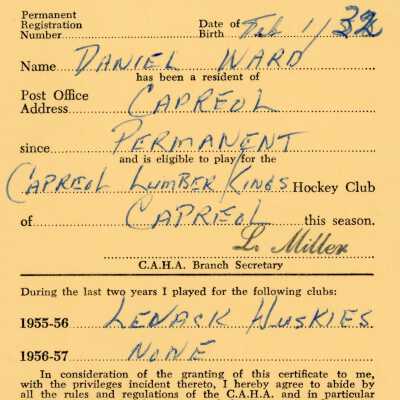 Permanent
Registration
Number
Date of
Birth Feb 1/32
Name DANIEL WARD
has been a resident of
Post Office
Address CAPREOL
since PERMANENT
and is eligible to play for the
CAPREOL LUMBER KINGS Hockey Club
of CAPREOL this season.
L. Miller
C.A.H.A. Branch Secretary
During the last two years I played for the following clubs:
1955-56 LENACK HUSKIES
1956-57 NONE
In consideration of the granting of this certificate to me,
with the privileges incident thereto, I hereby agree to abide by
all the rules and regulations of the C.A.H.A. and in particular